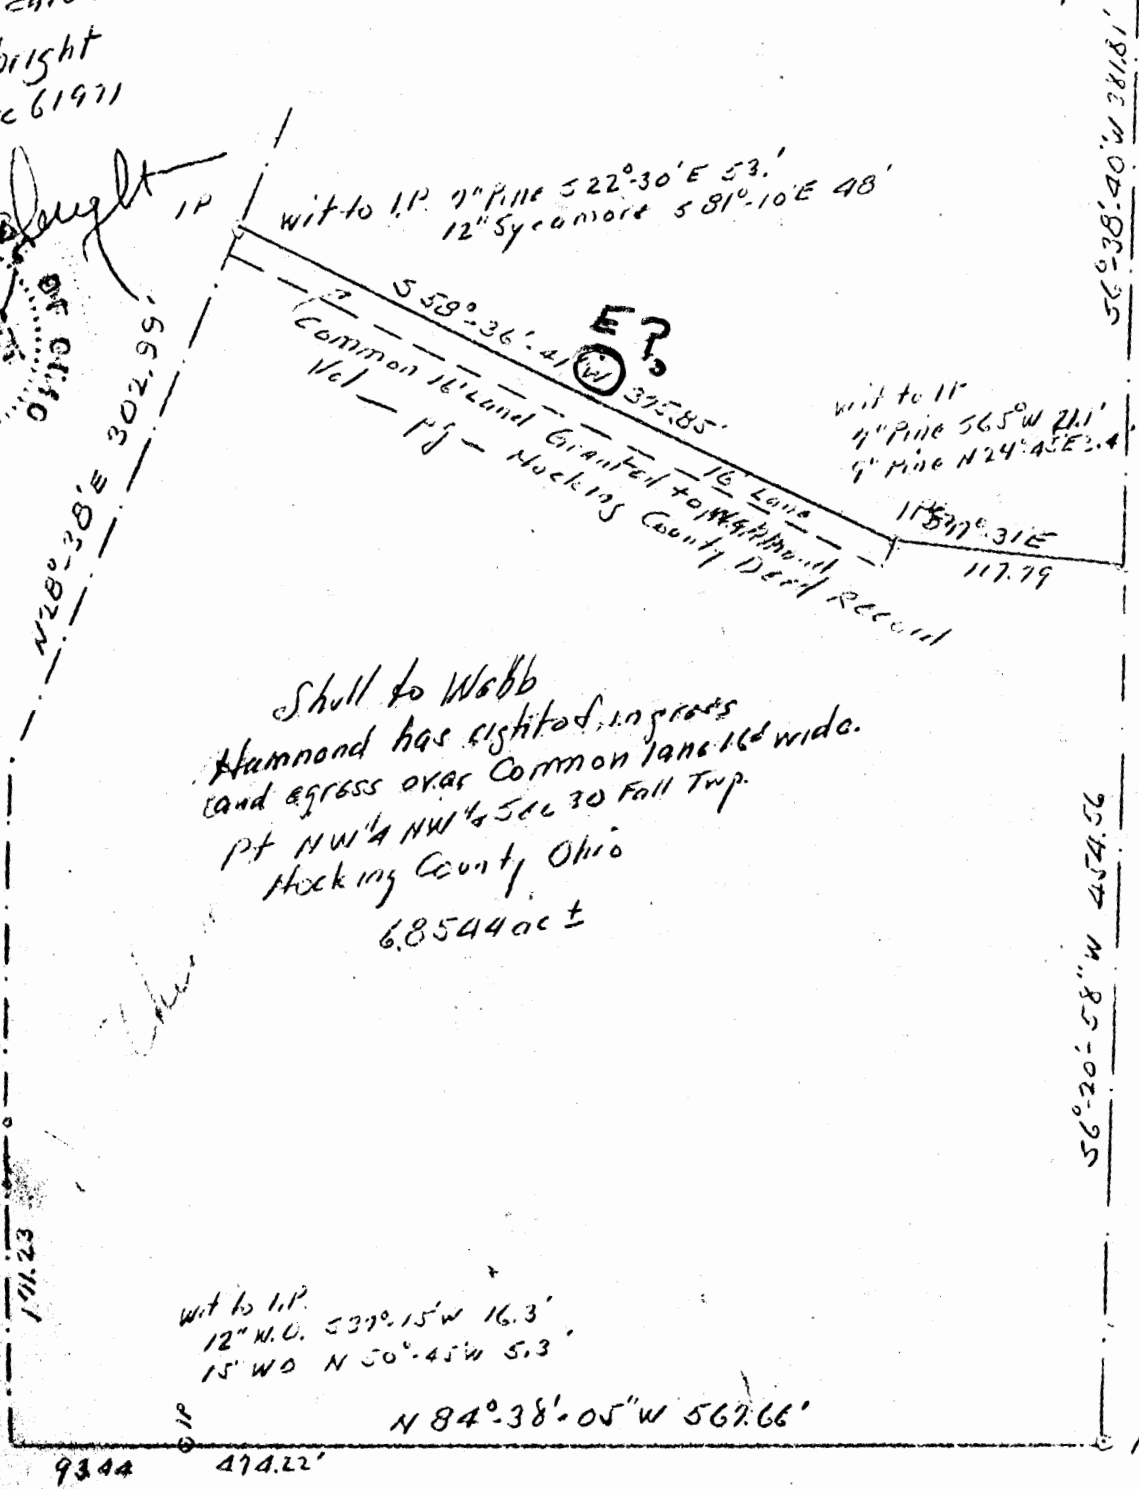 bright
61971
I.P
wit to I.P. 7" Pine S 22°-30' E 53.'
12" Sycamore S 81°-10' E 48'
S6°-38'-40" W 381.81'
OF OHIO
N 28°-38' E 302.99'
E?
S 58°-36'-41" W 395.85'
16' Lane
Common 16' Land Granted to
Vol — Pg — Hocking County Deed Record
wit to IP
7" Pine S65°W 21.1'
9" Pine N24°-45'E 3.4'
IP
S77°-31'E
117.79
Shull to Webb
Hammond has right of ingress
and egress over Common lane 16' wide.
Pt NW¼ NW¼ Sec 30 Fall Twp.
Hocking County Ohio
6.8544 ac ±
S6°-20'-58" W 454.26
171.23
wit to I.P.
12" W.O. S37°-15' W 16.3'
15" WO N 50°-45 W 5.3'
IP
N 84°-38'-05" W 567.66'
93.44 474.22'